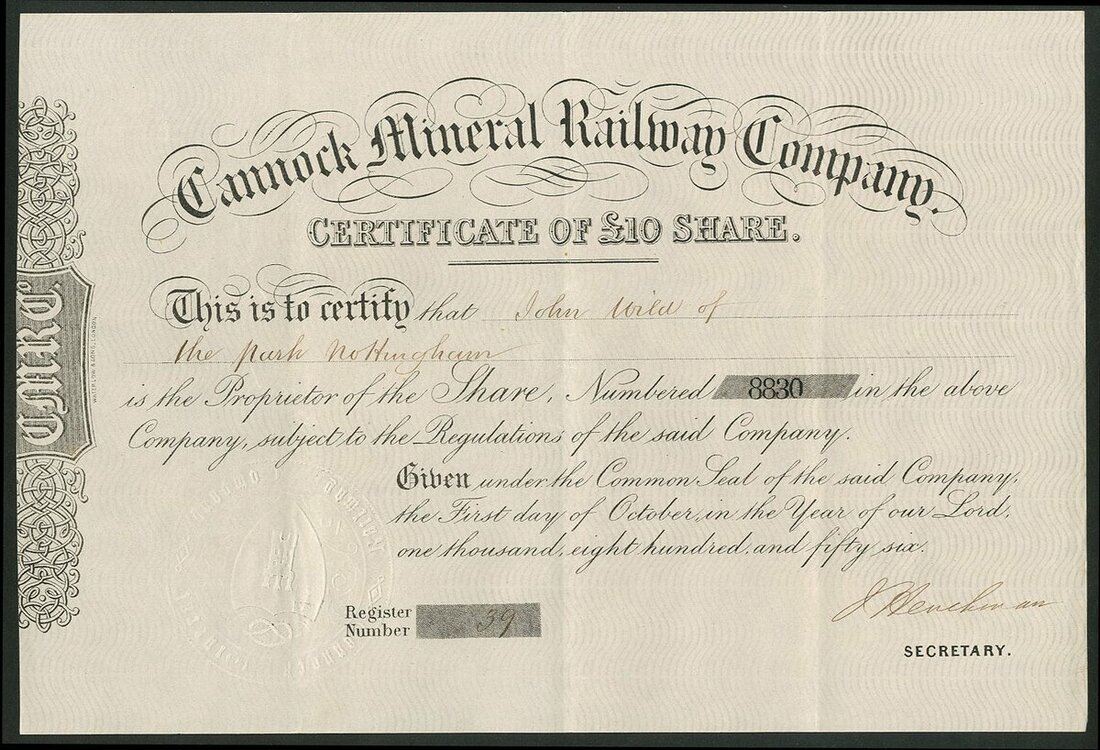 Cannock Mineral Railway Company.
CERTIFICATE OF £10 SHARE.
This is to certify that John Wild of
the park Nottingham
is the Proprietor of the Share, Numbered 8830 in the above
Company, subject to the Regulations of the said Company.
Given under the Common Seal of the said Company,
the First day of October, in the Year of our Lord,
one thousand, eight hundred, and fifty six.
Register
Number 39
J Henchman
SECRETARY.
C.M.R.C.
WATERLOW & SONS, LONDON